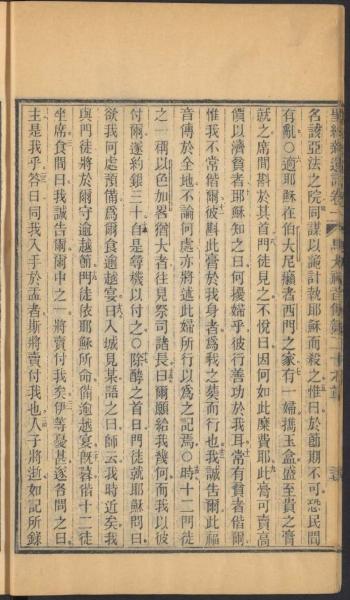 名該亞法之院同謀以詭計執耶穌而殺之惟曰於節期不可恐民間
有亂○適耶穌在伯大尼癩者西門之家有一婦攜玉盒盛至貴之膏
就之席間斟於其首門徒見之不悅曰因何如此糜費耶此膏可賣高
價以濟貧者耶穌知之曰何擾婦乎彼行善功於我耳常有貧者偕爾
惟我不常偕爾彼斟此膏於我身者爲我之葬而行也我誠告爾此福
音傳於全地不論何處亦將述此婦所行以爲之記焉○時十二門徒
之一稱以色加畧猶大者往見祭司諸長曰爾願給我幾何而我以彼
付爾遂約銀三十自是等機以付之○除酵之首日門徒就耶穌問曰
欲我何處預備爲爾食逾越宴曰入城見某語之曰師云我時近矣我
與門徒將於爾守逾越節門徒依耶穌所命備逾越宴旣暮偕十二徒
坐席食間曰我誠告爾爾中之一將賣付我矣伊等憂甚遂各問之曰
主是我乎答曰同我入手於盂者斯將賣付我也人子將逝如記所錄